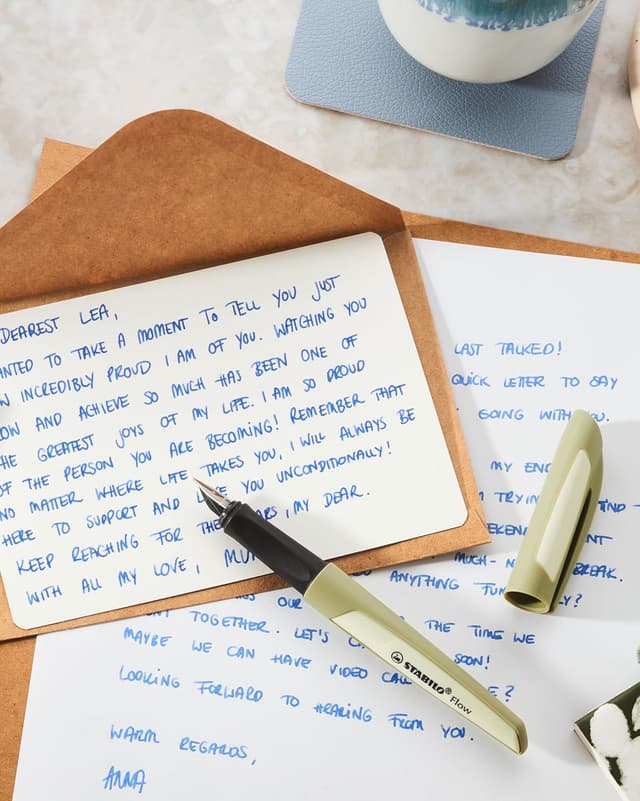 DEAREST LEA,
NTED TO TAKE A MOMENT TO TELL YOU JUST
W INCREDIBLY PROUD I AM OF YOU. WATCHING YOU
OW AND ACHIEVE SO MUCH HAS BEEN ONE OF
HE GREATEST JOYS OF MY LIFE. I AM SO PROUD
OF THE PERSON YOU ARE BECOMING! REMEMBER THAT
NO MATTER WHERE LIFE TAKES YOU, I WILL ALWAYS BE
HERE TO SUPPORT AND YOU UNCONDITIONALLY!
KEEP REACHING FOR THE , MY DEAR.
WITH ALL MY LOVE,
LAST TALKED!
QUICK LETTER TO SAY
GOING WITH YOU.
MY
MUCH- BREAK.
ANYTHING
OUR
TOGETHER. LET'S THE TIME WE
MAYBE WE CAN HAVE VIDEO SOON!
LOOKING FORWARD TO HEARING FROM YOU.
WARM REGARDS,
ANNA
STABILO® Flow